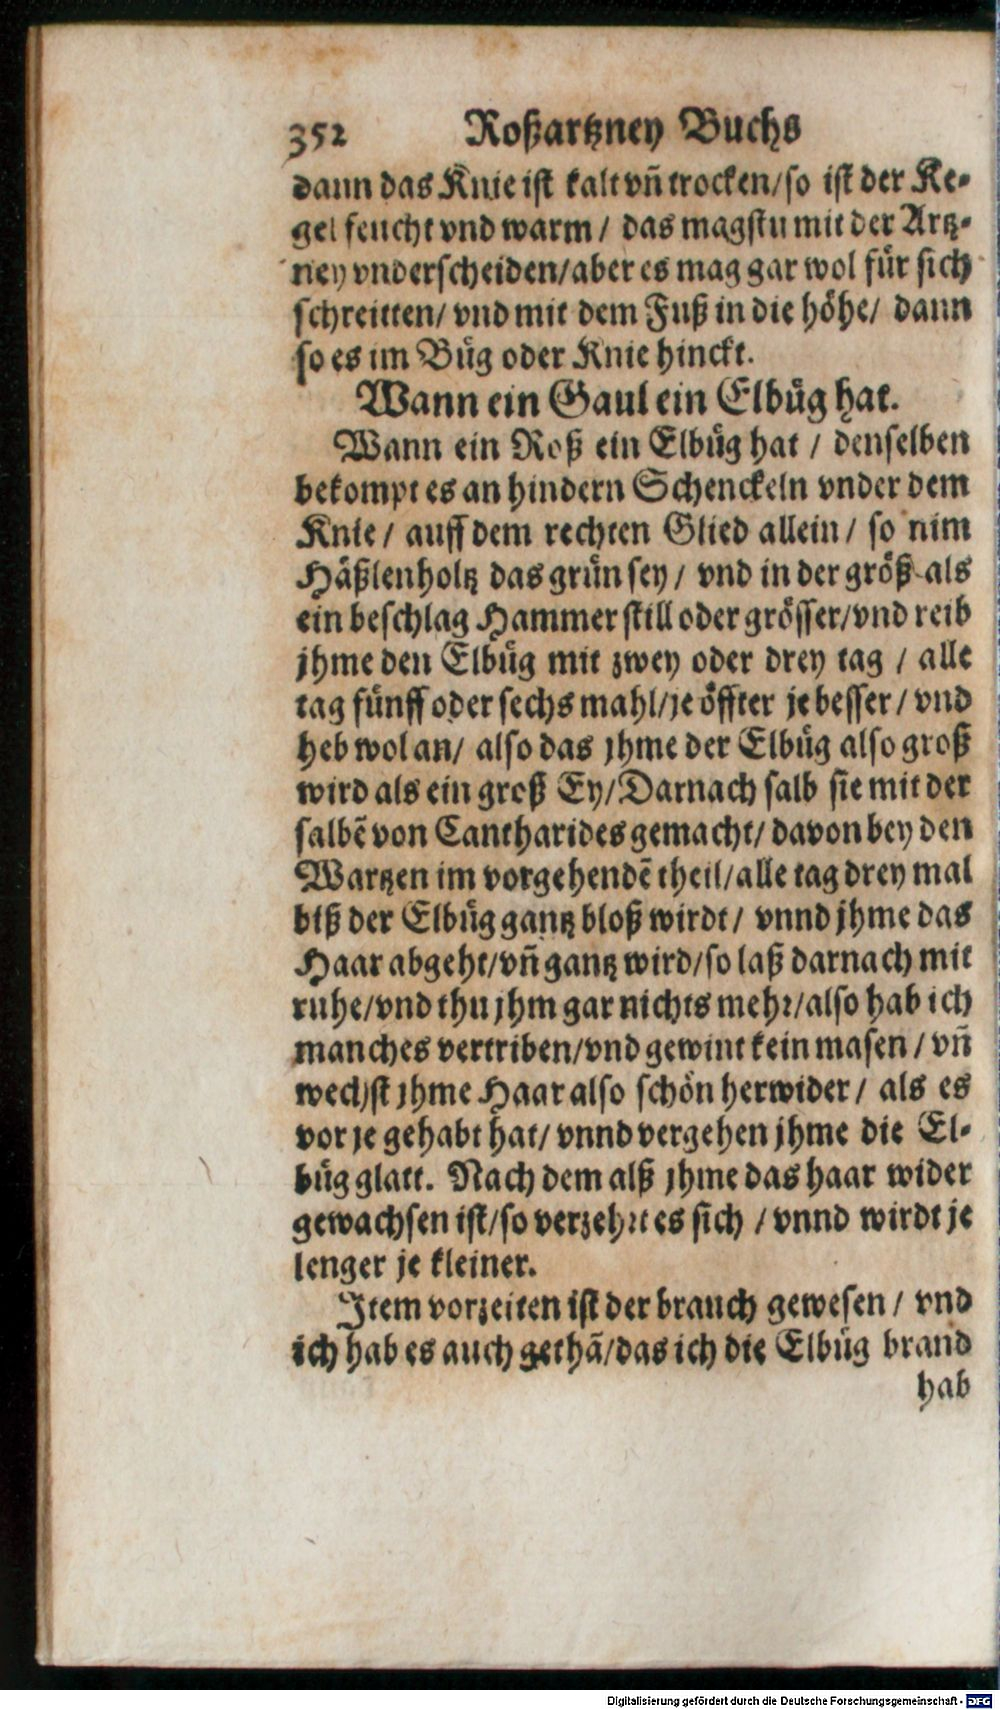 352 Roßartzney Buchs
dann das Knie ist kalt vñ trocken/so ist der Ke-
gel feucht vnd warm/ das magstu mit der Artz-
ney vnderscheiden/aber es mag gar wol für sich
schreitten/ vnd mit dem Fuß in die höhe/ dann
so es im Büg oder Knie hinckt.
Wann ein Gaul ein Elbüg hat.
Wann ein Roß ein Elbüg hat / denselben
bekompt es an hindern Schenckeln vnder dem
Knie/ auff dem rechten Glied allein/ so nim
Häßlenholtz das grün sey/ vnd in der größ als
ein beschlag Hammerstill oder grösser/vnd reib
jhme den Elbüg mit zwey oder drey tag / alle
tag fünff oder sechs mahl/je öffter je besser/ vnd
heb wol an/ also das jhme der Elbüg also groß
wird als ein groß Ey/Darnach salb sie mit der
salbẽ von Cantharides gemacht/ davon bey den
Wartzen im vorgehendẽ theil/alle tag drey mal
biß der Elbüg gantz bloß wirdt/ vnnd jhme das
Haar abgeht/vñ gantz wird/so laß darnach mit
ruhe/vnd thu jhm gar nichts mehr/also hab ich
manches vertriben/vnd gewint kein masen/ vñ
wechst jhme Haar also schön herwider/ als es
vor je gehabt hat/ vnnd vergehen jhme die El-
büg glatt. Nach dem alß jhme das haar wider
gewachsen ist/so verzehrt es sich / vnnd wirdt je
lenger je kleiner.
Item vorzeiten ist der brauch gewesen/ vnd
ich hab es auch gethã/das ich die Elbüg brand
hab
Digitalisierung gefördert durch die Deutsche Forschungsgemeinschaft - DFG